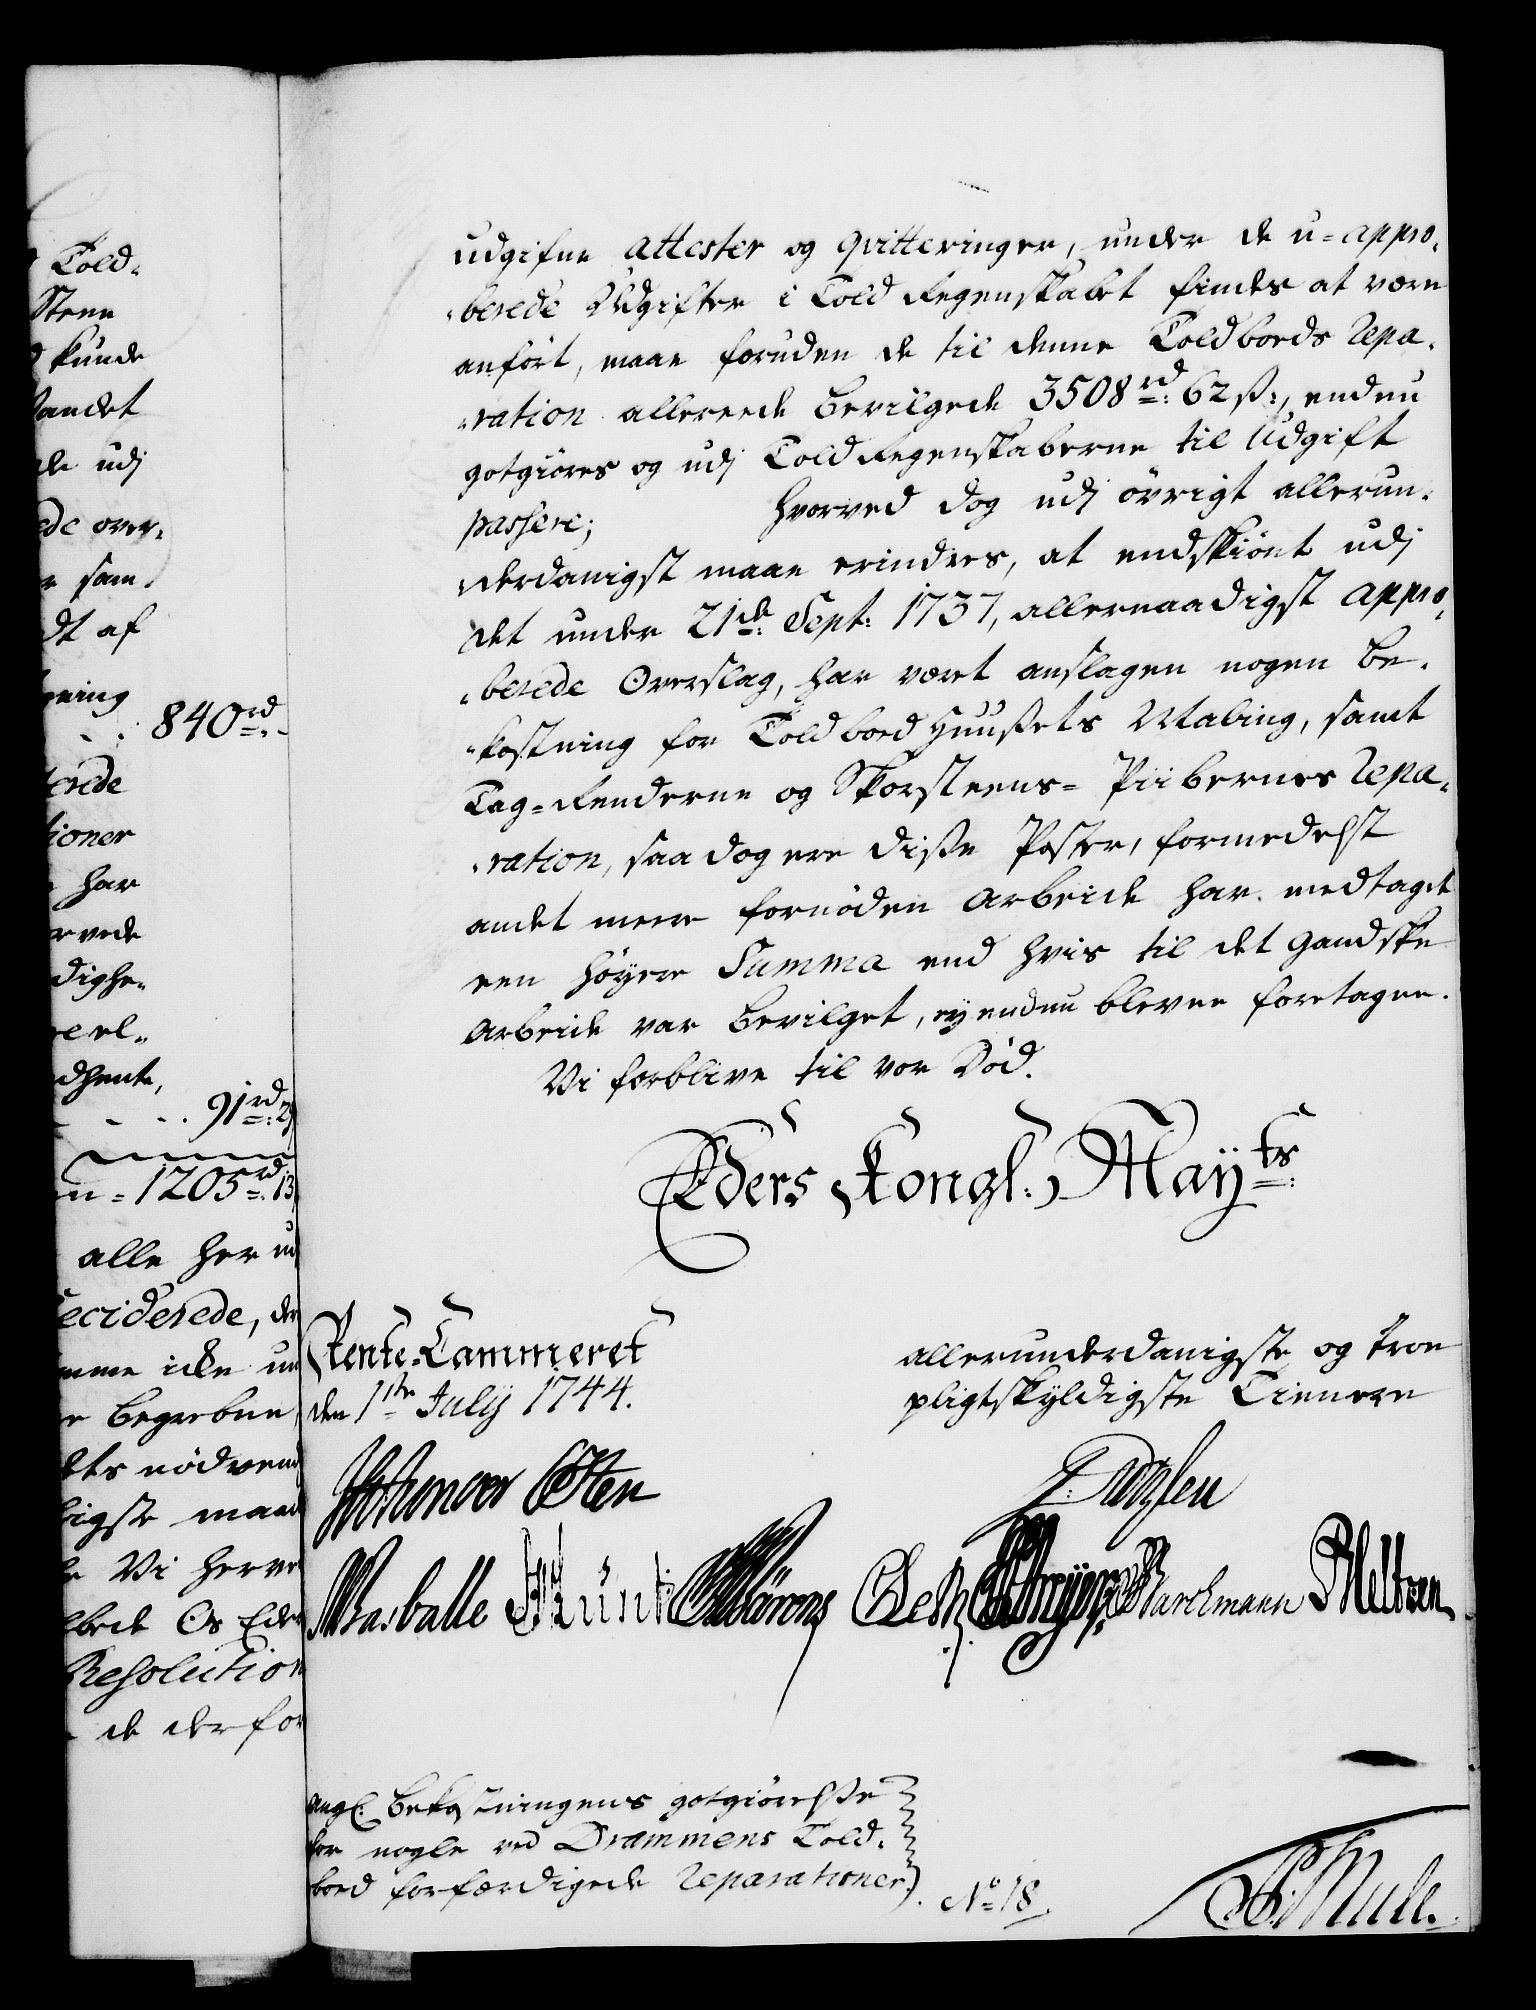 Told-
Steen
kunde
andet
udj
over-
sam-
dt af
ning
840rd
ioner
har
vede
dighe-
el-
dhente,
91rd: 2
1205rd: 13
alle her
eciderede, der
icke
begrebne
nødvend
igste maa
Vi herve
Os Eder
Resolution
de derfor
udgifne attester og qvitteringer, under de u-appro-
berede Udgifter i Told Regenskabet findes at være
anført, maae foruden de til denne Toldboeds Repa-
ration allereede bevilgede 3508rd: 62 ß:, endnu
gotgiøres og udj Told Regenskaberne til Udgift
passere; Hvorved dog udj øvrigt allerun-
derdanigst maae erindres, at endskiønt udj
det under 21de: Sept: 1737, allernaadigst appro-
berede Overslag, har været anslagen nogen be-
kostning for Toldboed Huußets Maling, samt
Tag-Renderne og Skorsteens-Piibernes Repa-
ration, saa dog ere diße Poster, formedelst
andet meere fornøden Arbeide har medtaget
een høyere Summa end hvis til det gandske
Arbeide var bevilget, ey endnu blevne foretagne.
Vi forblive til vor Død.
Eders Kongl: Mayts:
Rente-Cammeret
den 1ste July 1744.
allerunderdanigste og troe
pligtskyldigste Tienere
Wasballe
Barchmann Meltzen
angl: Bekostningens gotgiørelße
for nogle ved Drammens Told-
boed forfærdigede Reparationer.
No 18.
Mule.